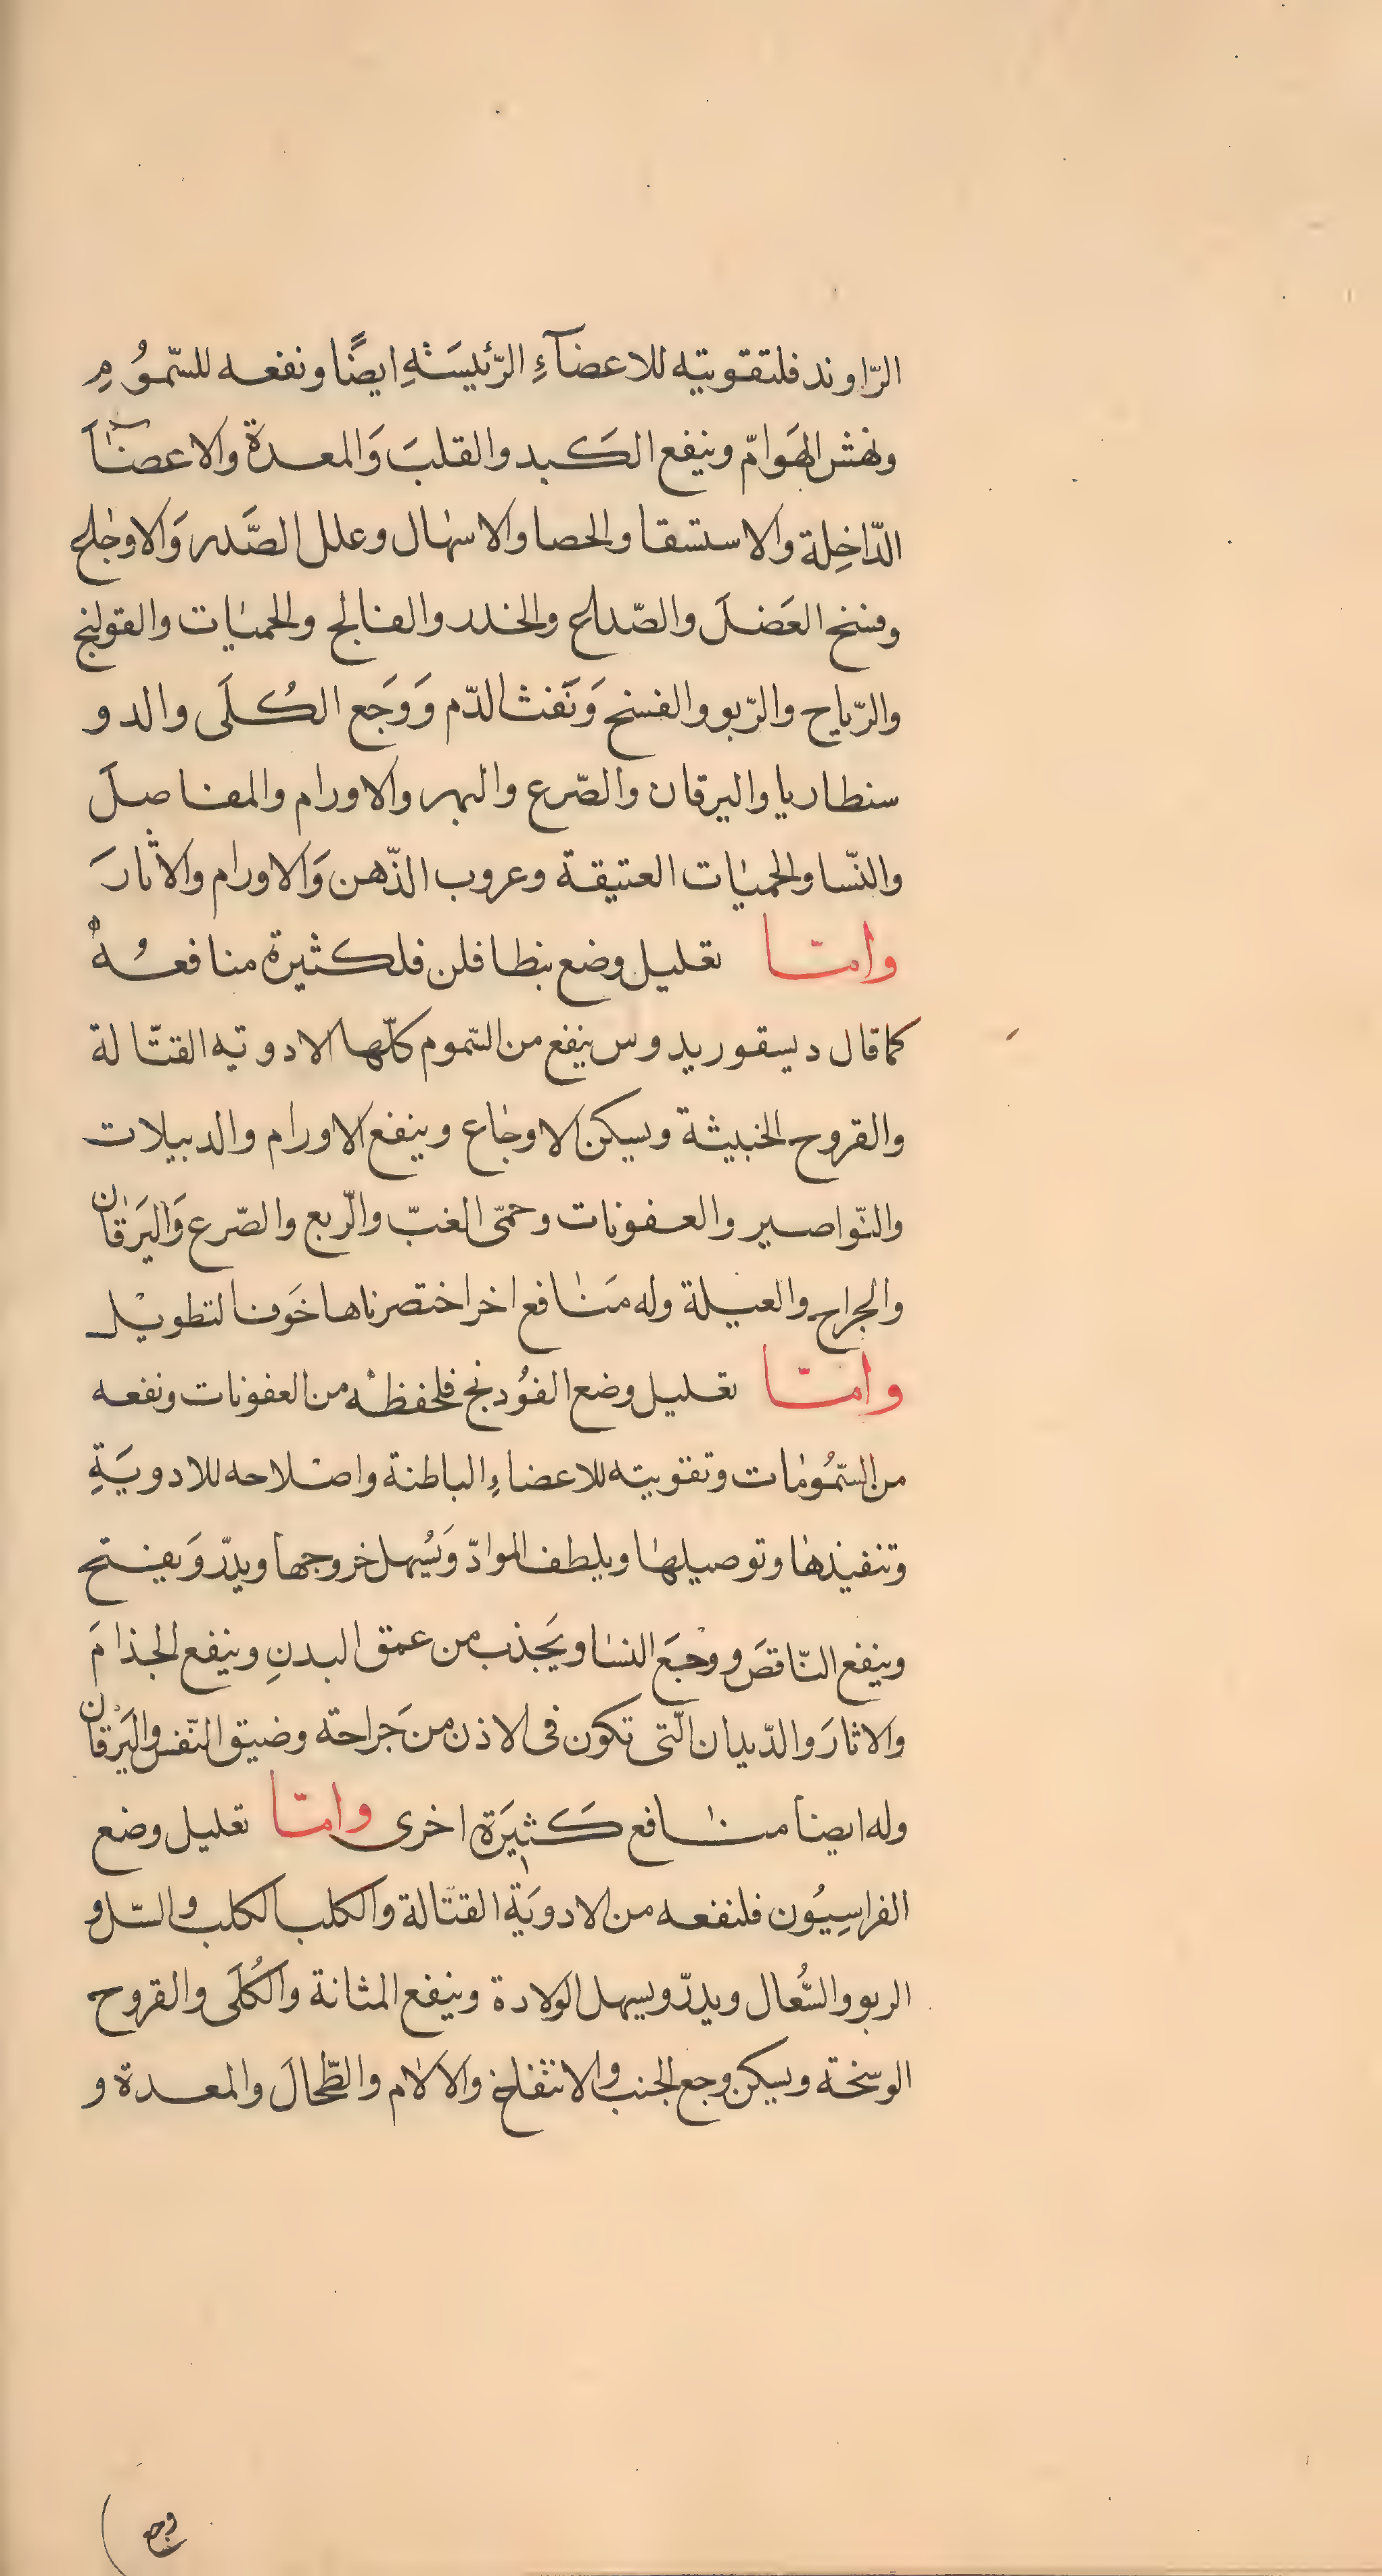 الرّاوند فلتقويته للاعضآءِ الرّئيسَةِ ايضًا ونفعه للسّمومِ
ونهش الهَوامّ وينفع الكَبد والقلبَ وَالمعدة والاعضاَ
الدّاخِلة والاستسقا والحصا والاسهال وعلل الصَّدر وَالاوجاع
وفسخ العَضلَ والصّداع والخدر والفالج والحميات والقولنج
والرّياح والرّبو والفسخ وَنَفث الدّم وَوَجَع الكُلَى والدو
سنطاريا واليرقان والصّرع والبهر والاورام والمفاصلَ
والنّسا والحميات العتيقة وعروب الذّهن وَالاورام والاثارَ
وامّا تعليل وضع بنطافلن فلكثيرة منافعُهُ
كما قال ديسقوريدوس ينفع من السّموم كلّها الادوته القتّالة
والقروح الخبيثة ويسكن الاوجاع وينفع الاورام والدبيلات
والنّواصير والعفونات وحمّى الغبّ والرّبع والصّرع وَاليَرَقان
والجراح والعيلة وله مَنافع اخر اختصرناها خَوفا لتطويل
وامّا تعليل وضع الفُودنج فلحفظه من العفونات ونفعه
من السّمُومَات وتقويته للاعضاءِ الباطنة واصلاحه للادويَةِ
وتنفيذها وتوصيلها ويلطف الموادّ وَيُسهل خروجها ويدرّ وَيفتح
وينفع النّاقصَ ووجَعَ النسا ويَجذب من عمق البدنِ وينفع الجذامَ
والاثارَ والدّيدان الّتى تكون فى الاذن من جَراحته وضيق النّفس واليَرْقان
وله ايضا منافع كَثيَرَة اخرى وامّا تعليل وضع
الفراسِيُون فلنفعه من الادويَة القتّالة والكلب الكلب والسّل و
الربو والسُّعال ويدرّ ويسهل الولادة وينفع المثانة والكُلَى والقروح
الوسخة ويسكن وجع الجنب والانتفاخ والآلام والطّحالَ والمعدة و
وجع